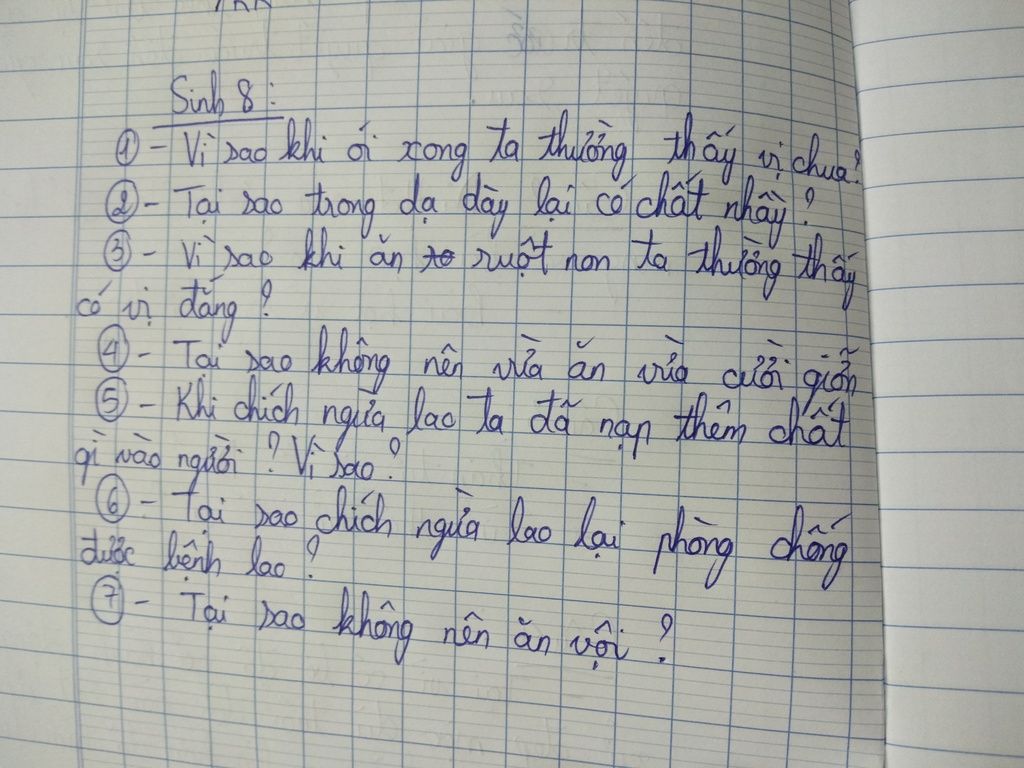 Sinh 8:
① - Vì sao khi ới xong ta thường thấy vị chua?
② - Tại sao trong dạ dày lại có chất nhầy?
③ - Vì sao khi ăn ruột non ta thường thấy
có vị đắng?
④ - Tại sao không nên vừa ăn vừa cười giỡn
⑤ - Khi chích ngừa lao ta đã nạp thêm chất
gì vào người? Vì sao?
⑥ - Tại sao chích ngừa lao lại phòng chống
được bệnh lao?
⑦ - Tại sao không nên ăn vội?